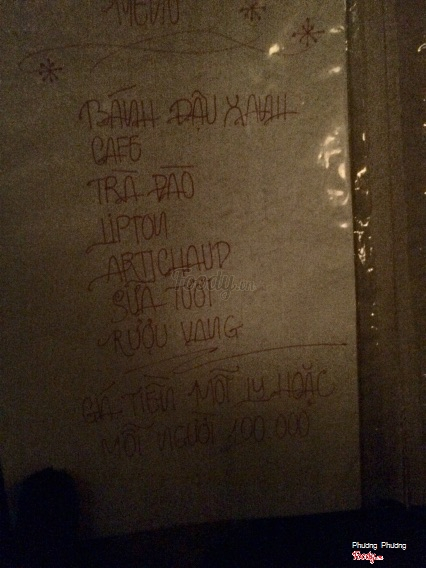 MENU
BÁNH ĐẬU XANH
CAFÉ
TRÀ ĐÀO
LIPTON
ARTICHAUD
SỮA TƯƠI
RƯỢU VANG
GÁ TIỀN MỖI LY HOẶC
MỖI NGƯỜI 100.000Đ
Foody.vn
Phương Phương
Foody.vn